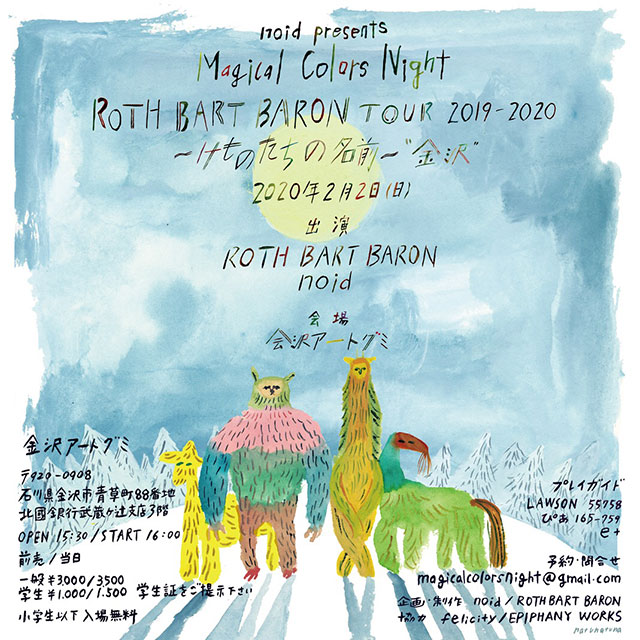 noid presents
Magical Colors Night
ROTH BART BARON TOUR 2019-2020
〜けものたちの名前〜"金沢"
2020年2月2日(日)
出演
ROTH BART BARON
noid
会場
金沢アートグミ
金沢アートグミ
〒920-0908
石川県金沢市青草町88番地
北國銀行武蔵ヶ辻支店3階
OPEN 15:30/START 16:00
前売/当日
一般¥3000/3500
学生¥1.000/1.500 学生証をご提示下さい
小学生以下入場無料
プレイガイド
LAWSON 55758
ぴあ 165-759
e+
予約・問合せ
magicalcolorsnight@gmail.com
企画・制作 noid/ROTH BART BARON
協力 felicity/EPIPHANY WORKS